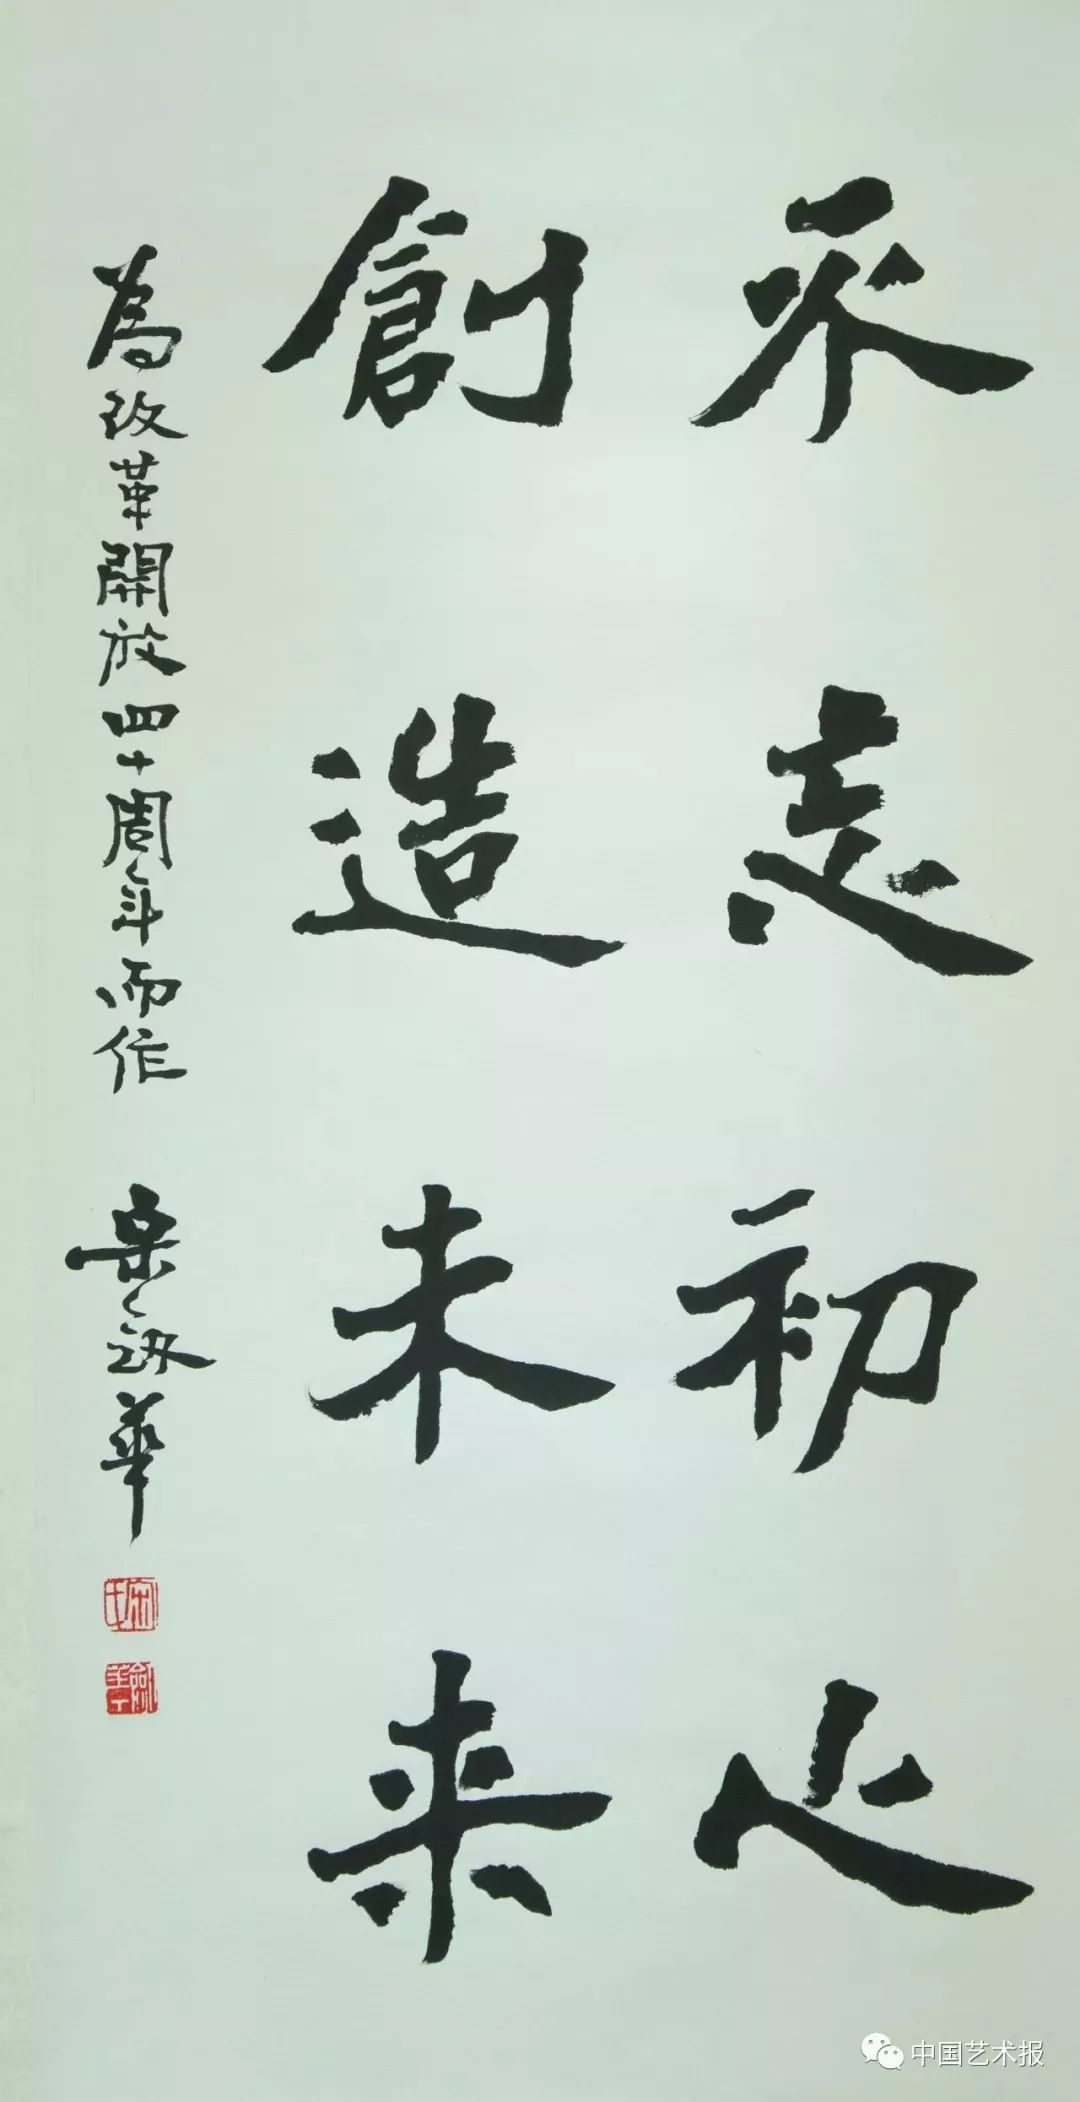 永志初心
創造未来
為改革開放四十周年而作
華
中国艺术报